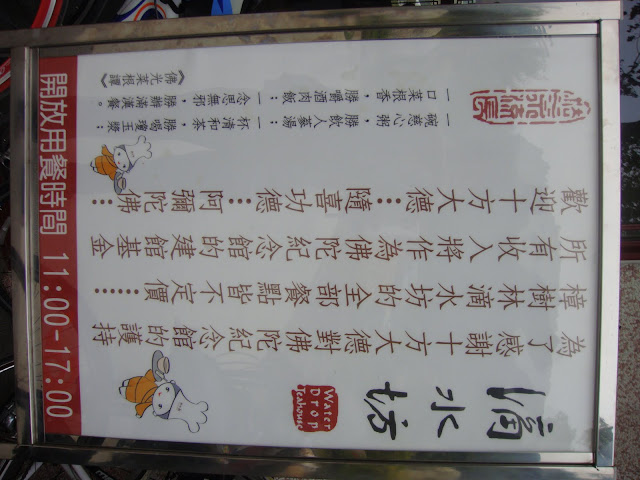 滴水坊
Water
Drop
Teahouse
為了感謝十方大德對佛陀紀念館的護持
樟樹林滴水坊的全部餐點皆不定價……
所有收入將作為佛陀紀念館的建館基金
歡迎十方大德……隨喜功德……阿彌陀佛……
一碗慈心粥，勝飲人蔘湯；一杯清和茶，勝喝瓊玉漿；
一口菜根香，勝嚼酒肉飯；一念思無邪，勝滿漢餐。
《佛光菜根譚》
開放用餐時間 11:00-17:00